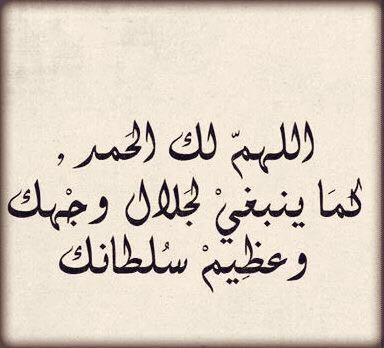 اللهمّ لك الحمد ,
كمَا ينبغيْ لجلال وجْهك
وعظِيمْ سُلطانك